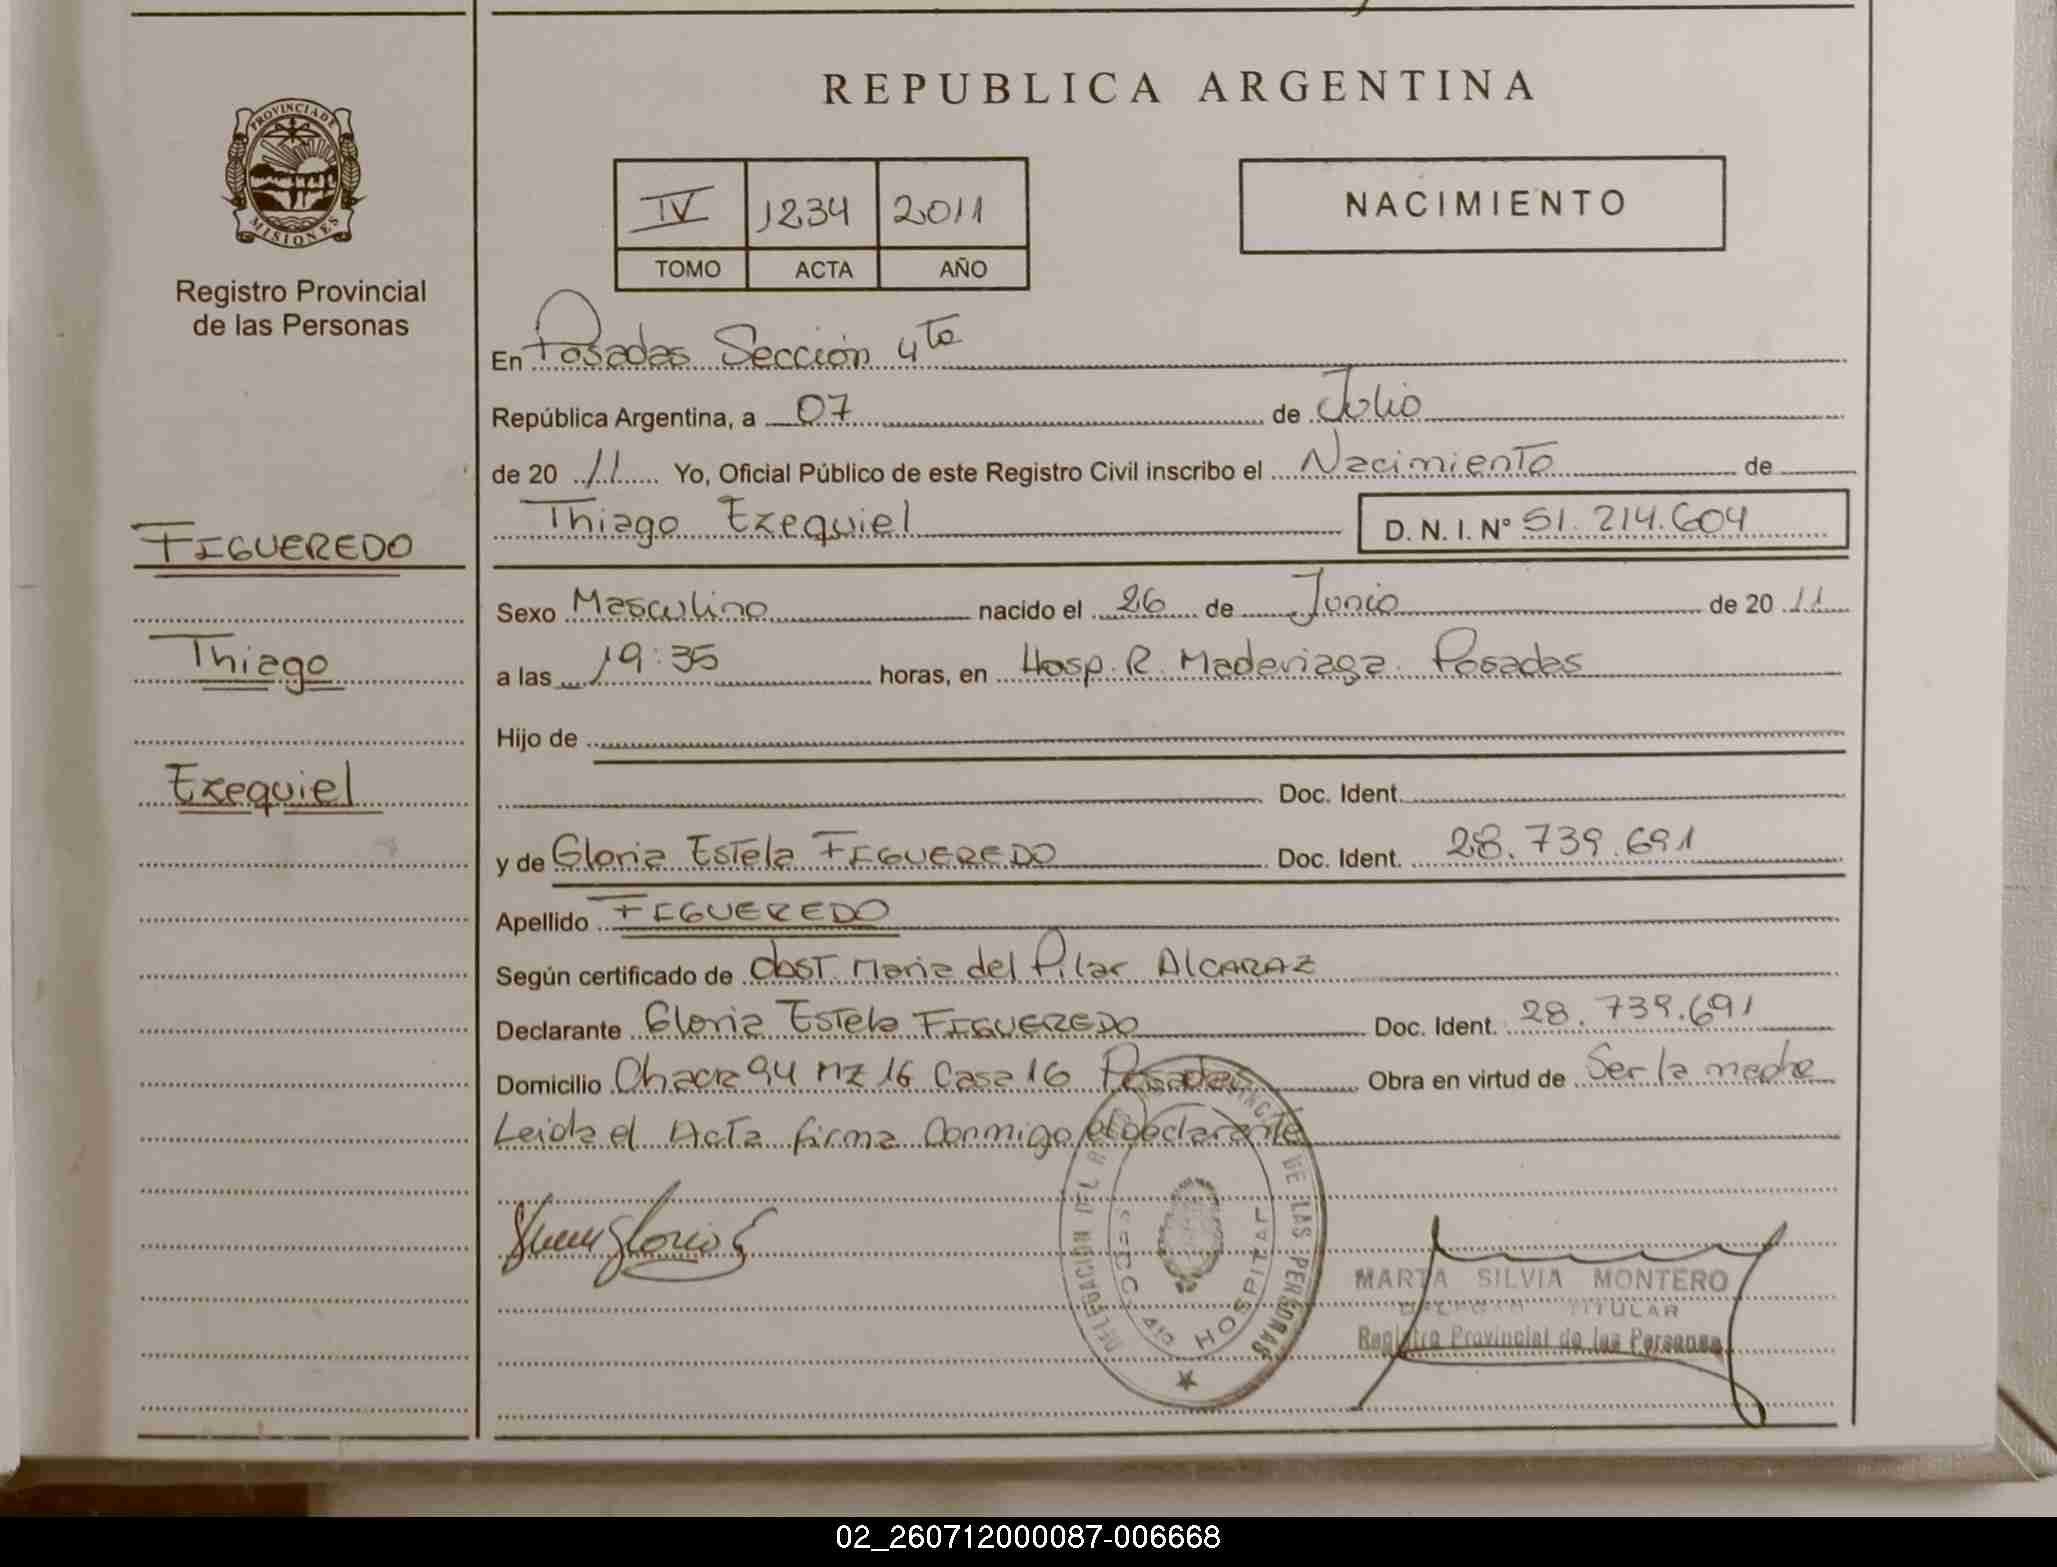 REPUBLICA ARGENTINA
PROVINCIA DE
MISIONES
Registro Provincial
de las Personas
IV 1234 2011
TOMO ACTA AÑO
NACIMIENTO
En Posadas Sección 4ta
República Argentina, a 07 de Julio
de 20 11 Yo, Oficial Público de este Registro Civil inscribo el Nacimiento de
Thiago Ezequiel D. N. I. Nº 51.214.604
FIGUEREDO
Thiago
Ezequiel
Sexo Masculino nacido el 26 de Junio de 20 11
a las 19:35 horas, en Hosp. R. Madariaga. Posadas
Hijo de
Doc. Ident.
y de Gloria Estela FIGUEREDO Doc. Ident. 28.739.691
Apellido FIGUEREDO
Según certificado de Obst. Maria del Pilar ALCARAZ
Declarante Gloria Estela FIGUEREDO Doc. Ident. 28.739.691
Domicilio Chacra 94 Mz 16 Casa 16 Posadas Obra en virtud de Ser la madre
Leida el Acta firma Conmigo el declarante
DELEGACIÓN DEL DE LAS PERSONAS
HOSPITAL
MARTA SILVIA MONTERO
TITULAR
Registro Provincial de las Personas
02_260712000087-006668